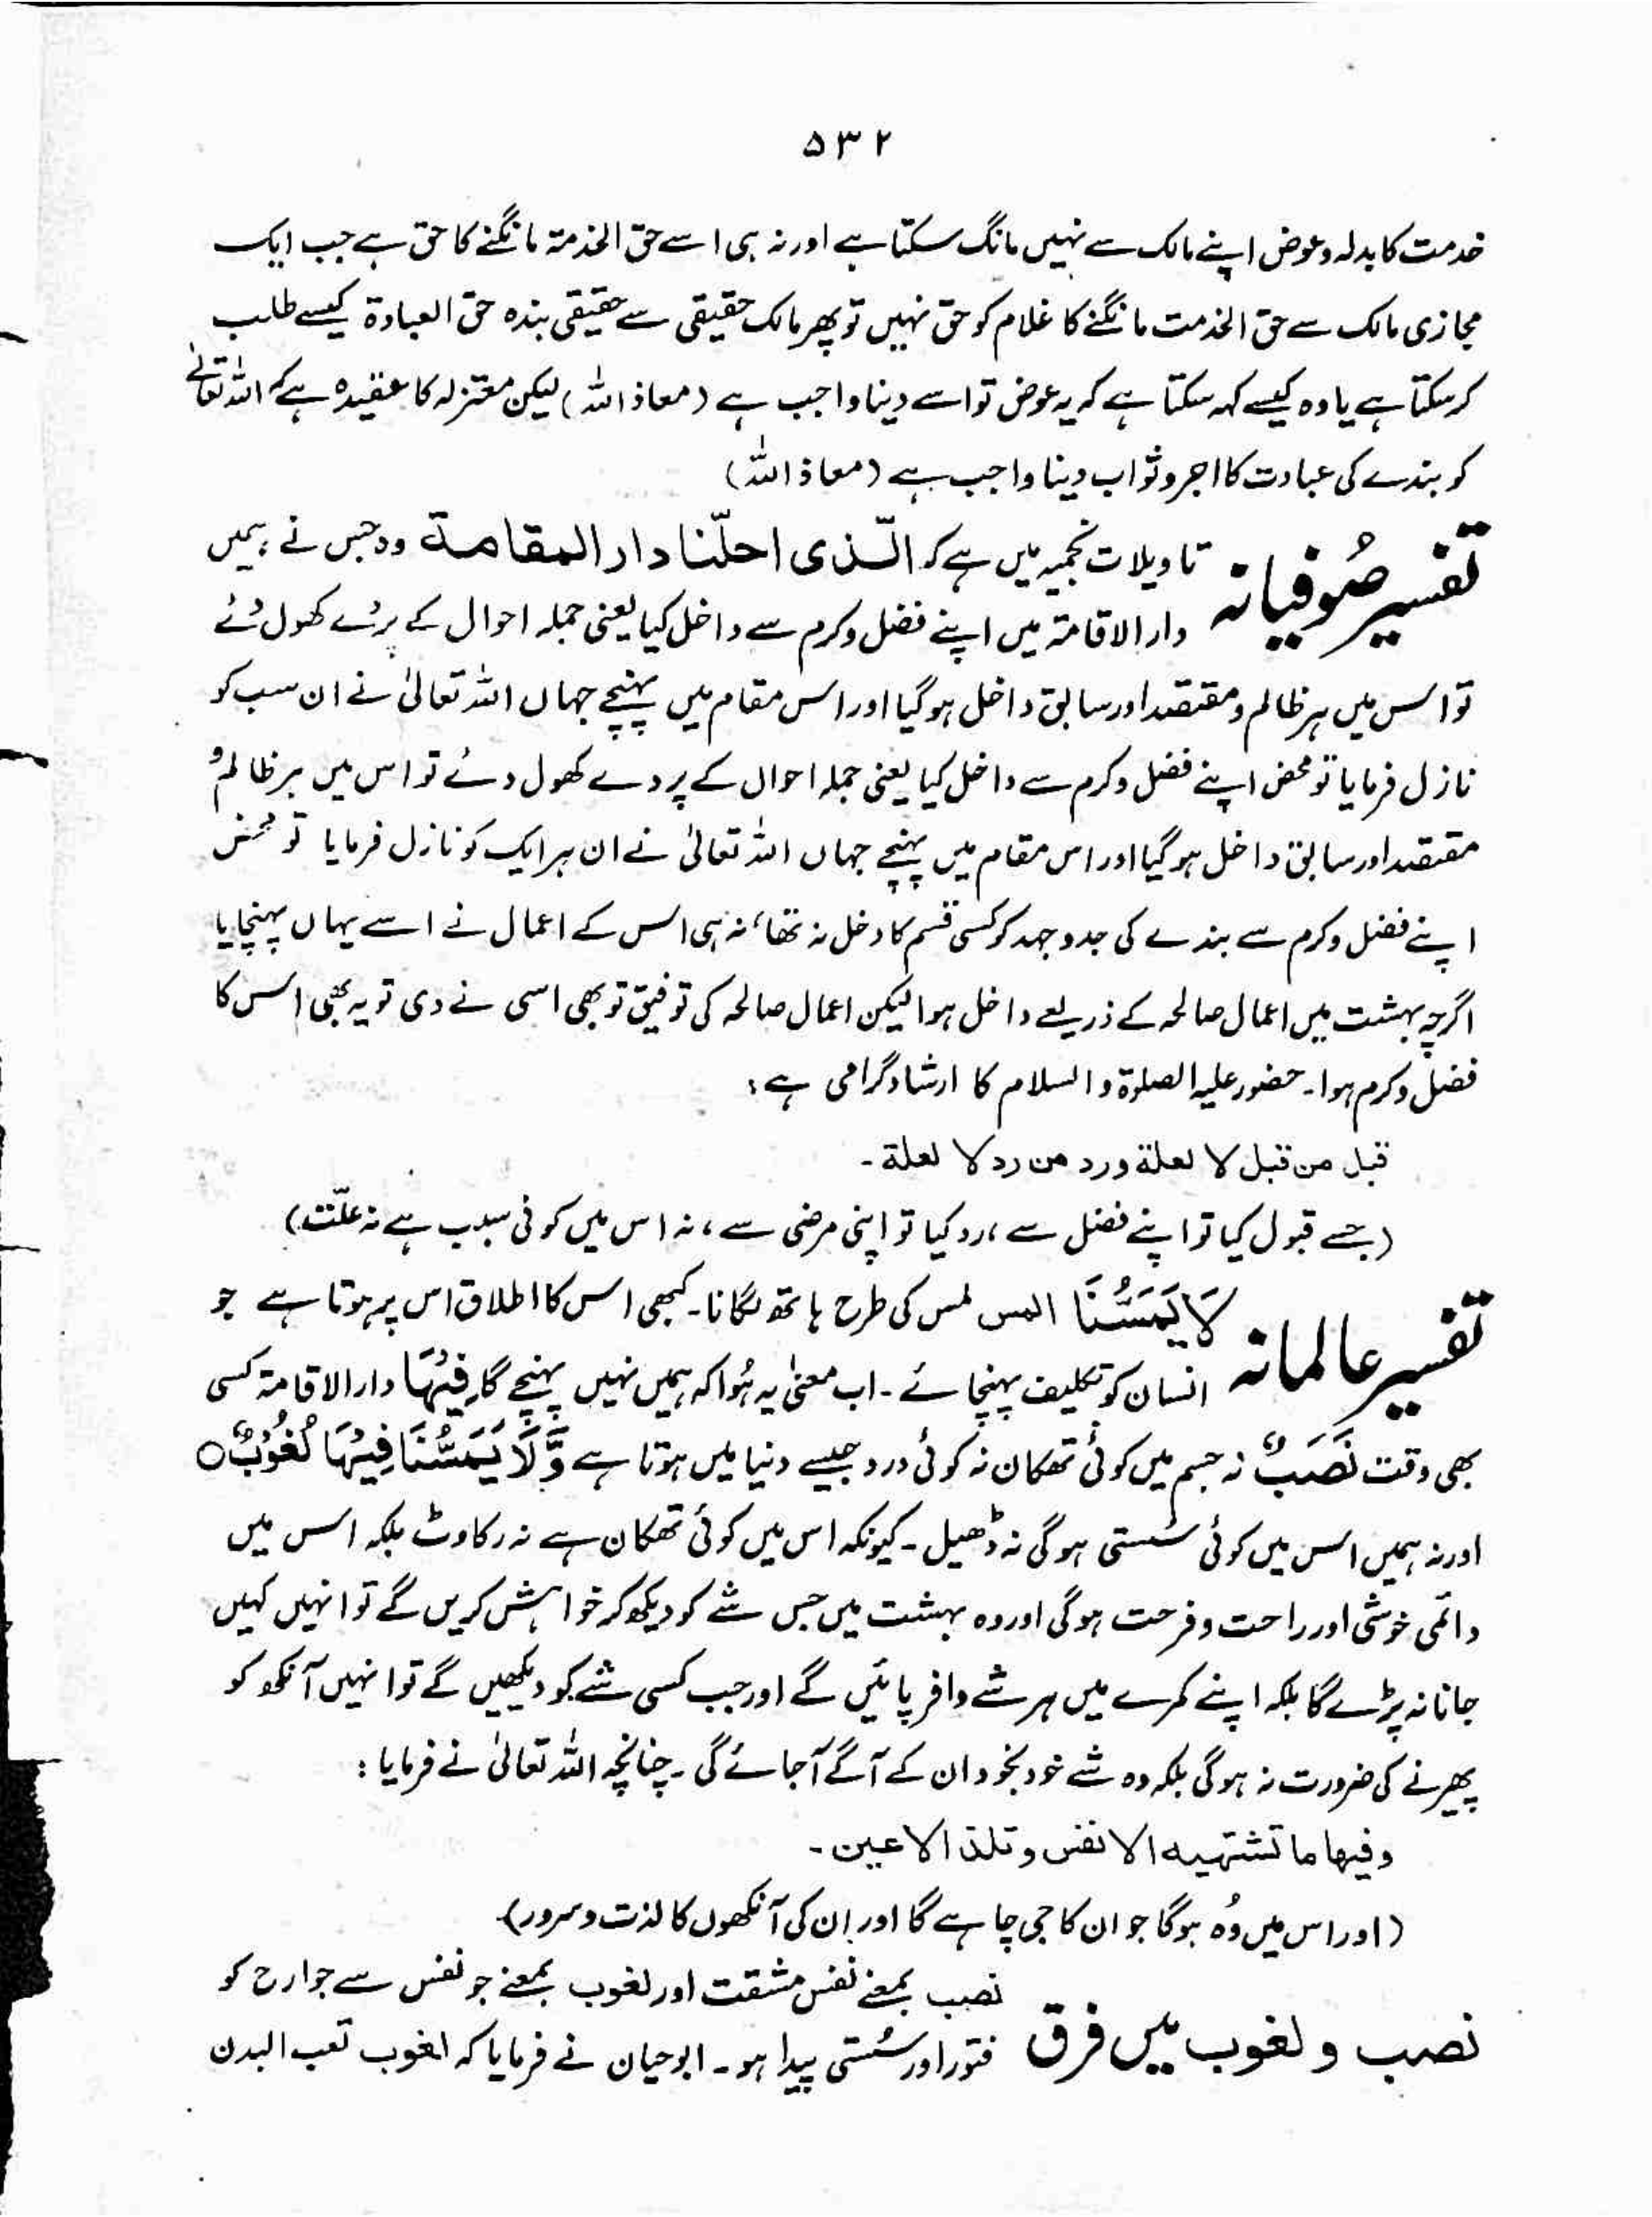 ۵۳۲
خدمت کا بدلہ و عوض اپنے مالک سے نہیں مانگ سکتا ہے اور نہ ہی اسے حق الخدمۃ مانگنے کا حق ہے جب ایک
مجازی مالک سے حق الخدمت مانگنے کا غلام کو حق نہیں تو پھر مالک حقیقی سے حقیقی بندہ حق العبادۃ کیسے طلب
کرسکتا ہے یا وہ کیسے کہہ سکتا ہے کہ یہ عوض تو اسے دینا واجب ہے (معاذ اللہ) لیکن معتزلہ کا عقیدہ ہے کہ اللہ تعالٰے
کو بندے کی عبادت کا اجر و ثواب دینا واجب ہے (معاذ اللہ)
تفسیر صُوفیانہ تاویلات نجمیہ میں ہے کہ الّذی احلّنا دار المقامة وہ جس نے ہمیں
دار الاقامۃ میں اپنے فضل و کرم سے داخل کیا یعنی جملہ احوال کے پردے کھول دئے
تو اس میں ہر ظالم و مقتصد اور سابق داخل ہو گیا اور اس مقام میں پہنچے جہاں اللہ تعالیٰ نے ان سب کو
نازل فرمایا تو محض اپنے فضل و کرم سے داخل کیا یعنی جملہ احوال کے پردے کھول دئے تو اس میں ہر ظالم و
مقتصد اور سابق داخل ہو گیا اور اس مقام میں پہنچے جہاں اللہ تعالیٰ نے ان ہر ایک کو نازل فرمایا تو محض
اپنے فضل و کرم سے بندے کی جد و جہد کو کسی قسم کا دخل نہ تھا، نہ ہی اس کے اعمال نے اسے یہاں پہنچایا
اگرچہ بہشت میں اعمال صالحہ کے ذریعے داخل ہوا لیکن اعمال صالحہ کی توفیق تو بھی اسی نے دی تو یہ بھی اس کا
فضل و کرم ہوا۔ حضور علیہ الصلوۃ و السلام کا ارشاد گرامی ہے:
قبل من قبل لا لعلة ورد من رد لا لعلة۔
(جسے قبول کیا تو اپنے فضل سے، رد کیا تو اپنی مرضی سے، نہ اس میں کوئی سبب ہے نہ علّت)
تفسیر عالمانہ لَا يَمَسُّنَا المس لمس کی طرح ہاتھ لگانا۔ کبھی اس کا اطلاق اس پر ہوتا ہے جو
انسان کو تکلیف پہنچائے۔ اب معنیٰ یہ ہُوا کہ ہمیں نہیں پہنچے گا فِيْهَا دار الاقامۃ کسی
بھی وقت نَصَبٌ نہ جسم میں کوئی تھکان نہ کوئی درد جیسے دنیا میں ہوتا ہے وَّلَا يَمَسُّنَا فِيْهَا لُغُوْبٌ ○
اور نہ ہمیں اس میں کوئی سُستی ہو گی نہ ڈھیل۔ کیونکہ اس میں کوئی تھکان ہے نہ رکاوٹ بلکہ اس میں
دائمی خوشی اور راحت و فرحت ہو گی اور وہ بہشت میں جس شے کو دیکھ کر خواہش کریں گے تو انہیں کہیں
جانا نہ پڑے گا بلکہ اپنے کمرے میں ہر شے وافر پائیں گے اور جب کسی شے کو دیکھیں گے تو انہیں آنکھ کو
پھیرنے کی ضرورت نہ ہو گی بلکہ وہ شے خود بخود ان کے آگے آجائے گی۔ چنانچہ اللہ تعالیٰ نے فرمایا:
وفيها ما تشتهيه الانفس و تلذ الاعين۔
(اور اس میں وُہ ہوگا جو ان کا جی چاہے گا اور ان کی آنکھوں کا لذت و سرور)
نصب و لغوب میں فرق نصب بمعنے نفس مشقت اور لغوب بمعنے جو نفس سے جوارح کو
فتور اور سُستی پیدا ہو۔ ابوحیان نے فرمایا کہ لغوب تعب البدن